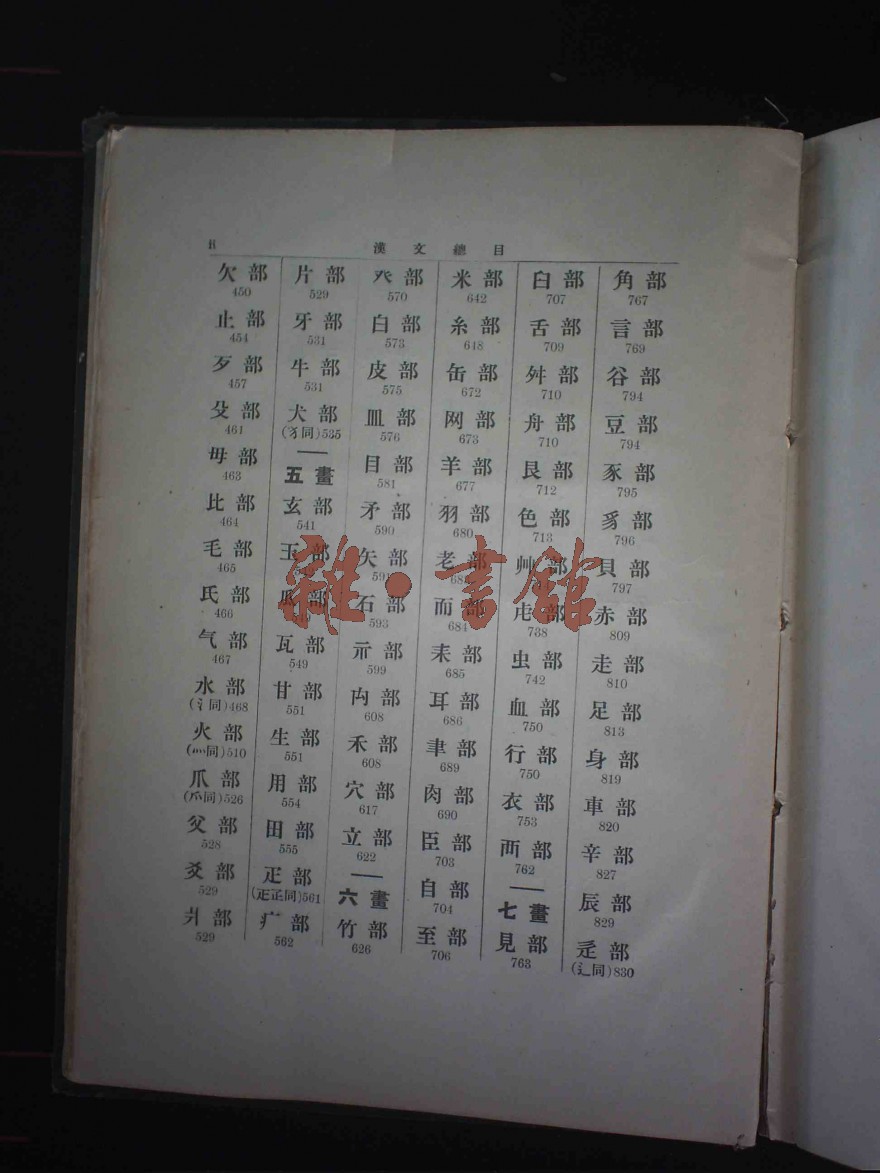 II 漢文總目
欠部
450
止部
454
歹部
457
殳部
461
毋部
463
比部
464
毛部
465
氏部
466
气部
467
水部
(氵同)468
火部
(灬同)510
爪部
(爫同)526
父部
528
爻部
529
爿部
529
片部
529
牙部
531
牛部
531
犬部
(犭同)535
五畫
玄部
541
玉部
瓜部
瓦部
549
甘部
551
生部
551
用部
554
田部
555
疋部
(疋𤴔同)561
疒部
562
癶部
570
白部
573
皮部
575
皿部
576
目部
581
矛部
590
矢部
591
石部
593
示部
599
禸部
608
禾部
608
穴部
617
立部
622
六畫
竹部
626
米部
642
糸部
648
缶部
672
网部
673
羊部
677
羽部
680
老部
而部
684
耒部
685
耳部
686
聿部
689
肉部
690
臣部
703
自部
704
至部
706
臼部
707
舌部
709
舛部
710
舟部
710
艮部
712
色部
713
艸部
虍部
738
虫部
742
血部
750
行部
750
衣部
753
襾部
762
七畫
見部
763
角部
767
言部
769
谷部
794
豆部
794
豕部
795
豸部
796
貝部
797
赤部
809
走部
810
足部
813
身部
819
車部
820
辛部
827
辰部
829
辵部
(辶同)830
雜·書館